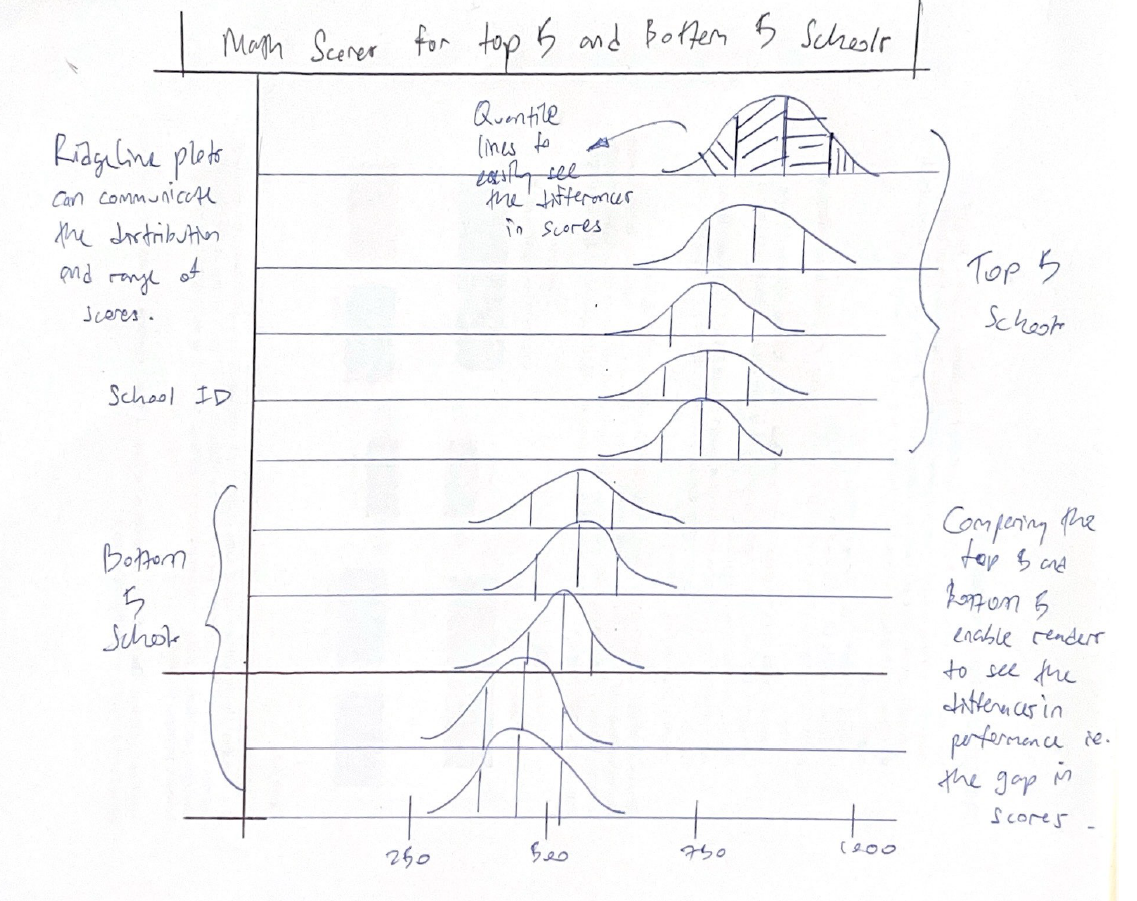 Math Scores for top 5 and Bottom 5 Schools
Ridgeline plots
can communicate
the distribution
and range of
scores.
Quantile
lines to
easily see
the differences
in scores
Top 5
Schools
School ID
Bottom
5
Schools
Comparing the
top 5 and
Bottom 5
enable readers
to see the
differences in
performance ie.
the gap in
scores -
250
500
750
1000